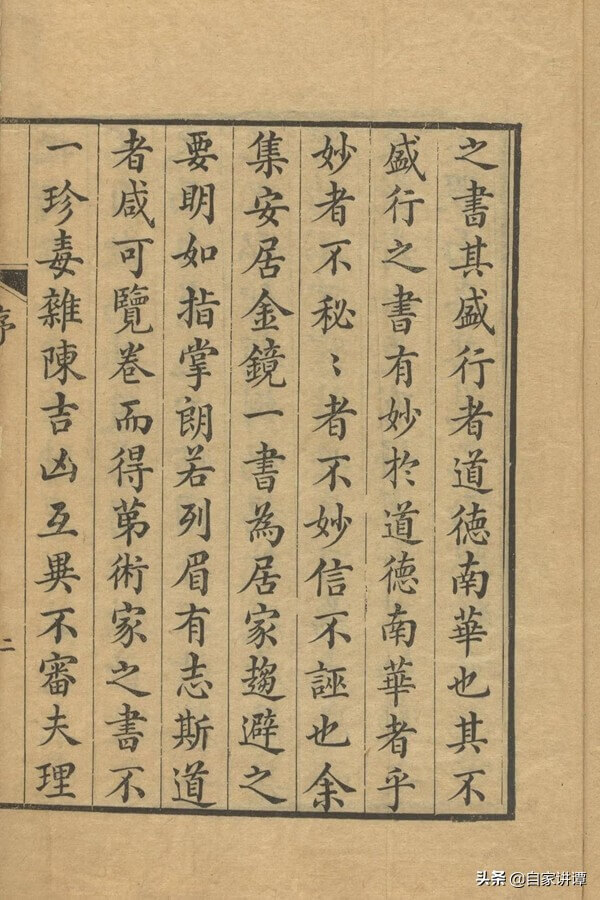 之書其盛行者道德南華也其不
盛行之書有妙於道德南華者乎
妙者不秘〻者不妙信不誣也余
集安居金鏡一書為居家趨避之
要明如指掌朗若列眉有志斯道
者咸可覽卷而得苐術家之書不
一珍毒雜陳吉凶互異不審夫理
序
二
头条 @自家讲谭